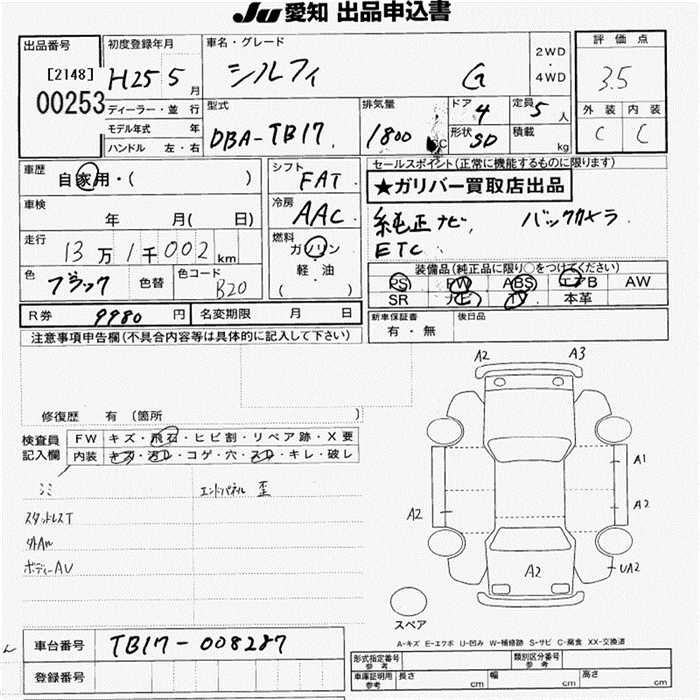 JU 愛知 出品申込書
出品番号
[2148]
00253
初度登録年月
H25 5 月
車名・グレード
シルフィ G
2WD
・
4WD
評価点
3.5
外装 内装
C C
ディーラー・並行
モデル年式 年
ハンドル 左・右
型式
DBA-TB17
排気量
1800 CC
ドア 4
形状 SD
定員 5 人
積載 kg
車歴
自家用・( )
車検
年 月( 日)
走行
13万1千002km
色
ブラック 色替
色コード
B20
シフト
FAT
冷房
AAC
燃料
ガソリン
軽・油
( )
セールスポイント(正常に機能するものに限ります)
★ガリバー買取店出品
純正ナビ, バックカメラ
ETC
装備品(純正品に限り○をつけてください)
PS PW ABS エアB AW
SR ナビ TV 本革
R券 9980 円 名変期限 月 日
新車保証書
有・無
後日品
注意事項申告欄(不具合内容等は具体的に記入して下さい)
修復歴 有 (箇所 )
検査員
記入欄
FW キズ・飛石・ヒビ割・リペア跡・X要
内装 キズ・汚レ・コゲ・穴・スレ・キレ・破レ
ミミ エンドパネル 歪
スタッドレスT
外AW
ボディーAU
A2 A3
A1
A2
A2
UA2
A2
スペア
A-キズ E-エクボ U-凹み W-補修跡 S-サビ C-腐食 XX-交換済
車台番号 TB17-008287
登録番号
形式指定番号
参考
類別区分番号
参考
車庫証明用
参考
長さ cm 幅 cm 高さ cm